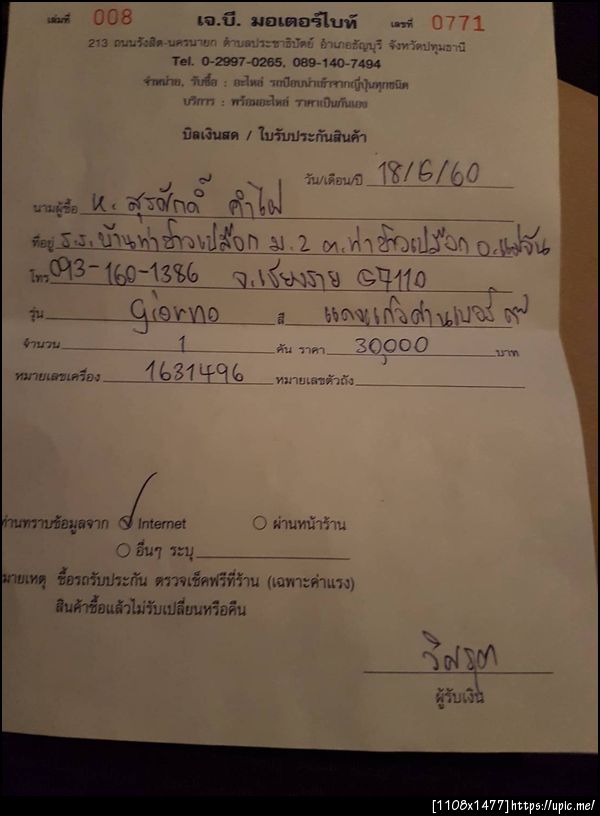 เล่มที่ 008 เจ.บี. มอเตอร์ไบท์ เลขที่ 0771
213 ถนนรังสิต-นครนายก ตำบลประชาธิปัตย์ อำเภอธัญบุรี จังหวัดปทุมธานี
Tel. 0-2997-0265, 089-140-7494
จำหน่าย, รับซื้อ : อะไหล่ รถป๊อปนำเข้าจากญี่ปุ่นทุกชนิด
บริการ : พร้อมอะไหล่ ราคาเป็นกันเอง
บิลเงินสด / ใบรับประกันสินค้า
วัน/เดือน/ปี 18/6/60
นามผู้ซื้อ สุรศักดิ์
ที่อยู่ ร.ร.บ้านท่าข้าวเปลือก ม.2 ต.ท่าข้าวเปลือก อ.แม่จัน
โทร 093-160-1386 จ.เชียงราย 57110
รุ่น Giorno สี แดงแก้ว
จำนวน 1 คัน ราคา 30,000 บาท
หมายเลขเครื่อง 1631496 หมายเลขตัวถัง
ท่านทราบข้อมูลจาก Internet ผ่านหน้าร้าน
อื่นๆ ระบุ
มายเหตุ ซื้อรถรับประกัน ตรวจเช็คฟรีที่ร้าน (เฉพาะค่าแรง)
สินค้าซื้อแล้วไม่รับเปลี่ยนหรือคืน
ผู้รับเงิน
[1108x1477]https://upic.me/